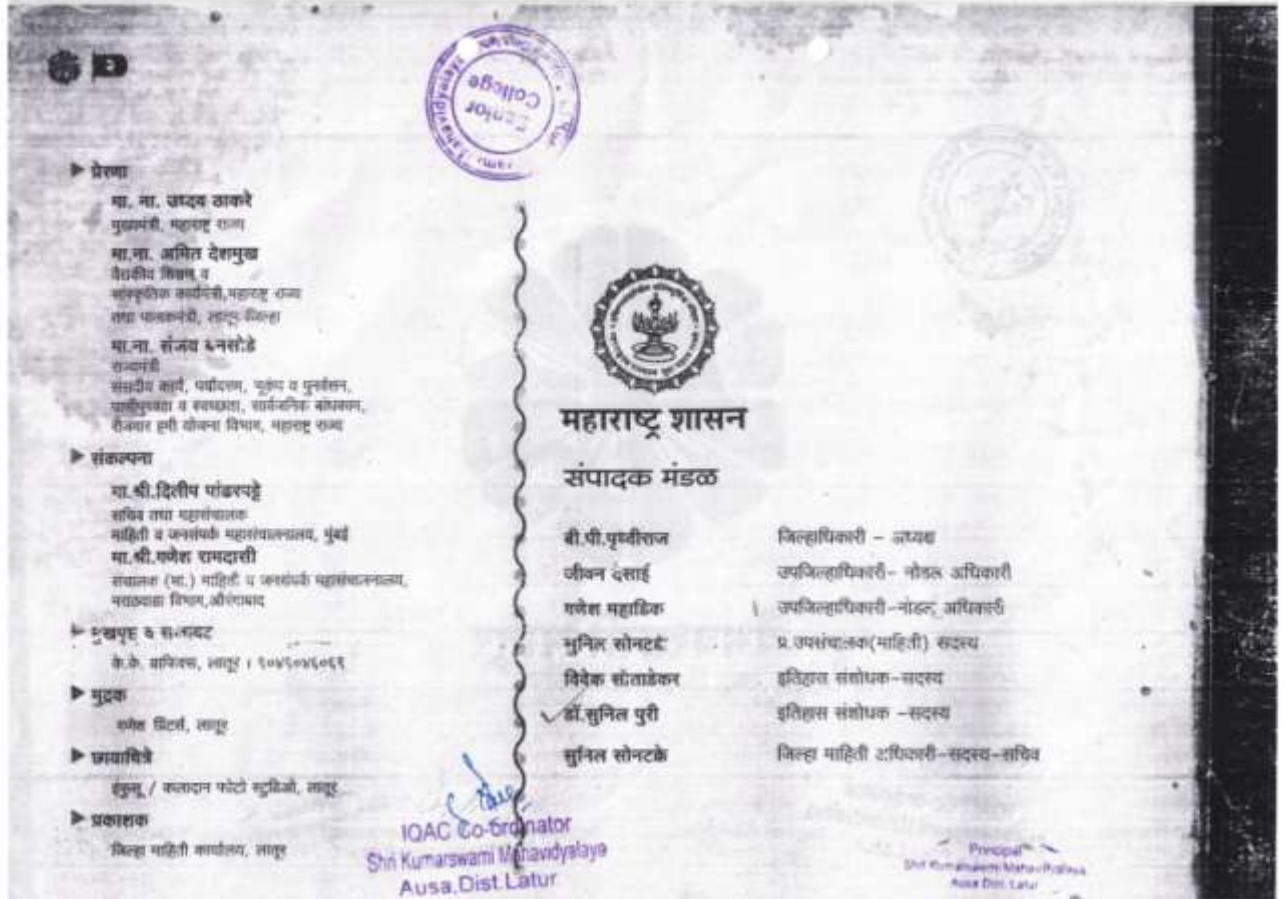 ▶ प्रेरणा
मा. ना. उध्दव ठाकरे
मुख्यमंत्री, महाराष्ट्र राज्य
मा.ना. अमित देशमुख
वैद्यकीय शिक्षण व
सांस्कृतिक कार्यमंत्री,महाराष्ट्र राज्य
तथा पालकमंत्री, लातूर जिल्हा
मा.ना. संजय बनसोडे
राज्यमंत्री
संसदीय कार्य, पर्यावरण, भूकंप व पुनर्वसन,
पाणीपुरवठा व स्वच्छता, सार्वजनिक बांधकाम,
रोजगार हमी योजना विभाग, महाराष्ट्र राज्य
▶ संकल्पना
मा.श्री.दिलीप पांढरपट्टे
सचिव तथा महासंचालक
माहिती व जनसंपर्क महासंचालनालय, मुंबई
मा.श्री.गणेश रामदासी
संचालक (मा.) माहिती व जनसंपर्क महासंचालनालय,
मराठवाडा विभाग,औरंगाबाद
मुखपृष्ठ व सजावट
के.के. ग्राफिक्स, लातूर
▶ मुद्रक
गणेश प्रिंटर्स, लातूर
▶ छायाचित्रे
/ कलादान फोटो स्टुडिओ, लातूर
▶ प्रकाशक
जिल्हा माहिती कार्यालय, लातूर
Senior
College
महाराष्ट्र शासन
संपादक मंडळ
बी.पी.पृथ्वीराज जिल्हाधिकारी – अध्यक्ष
जीवन देसाई उपजिल्हाधिकारी– नोडल अधिकारी
गणेश महाडिक उपजिल्हाधिकारी–नोडल अधिकारी
सुनिल सोनटक्के प्र.उपसंचालक(माहिती) सदस्य
विवेक सौताडेकर इतिहास संशोधक–सदस्य
डॉ.सुनिल पुरी इतिहास संशोधक –सदस्य
सुनिल सोनटक्के जिल्हा माहिती अधिकारी–सदस्य–सचिव
IQAC Co-ordinator
Shri Kumarswami Mahavidyalaya
Ausa,Dist.Latur
Principal
Shri Kumarswami Mahavidyalaya
Ausa Dist. Latur